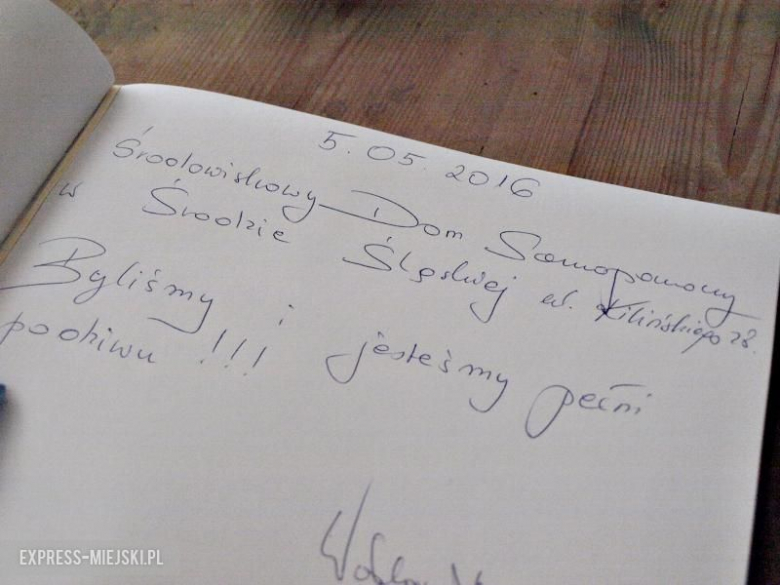 5.05.2016
Środowiskowy Dom Samopomocy
w Środzie Śląskiej ul. Kilińskiego 28.
Byliśmy i jesteśmy pełni
podziwu !!!
EXPRESS-MIEJSKI.PL